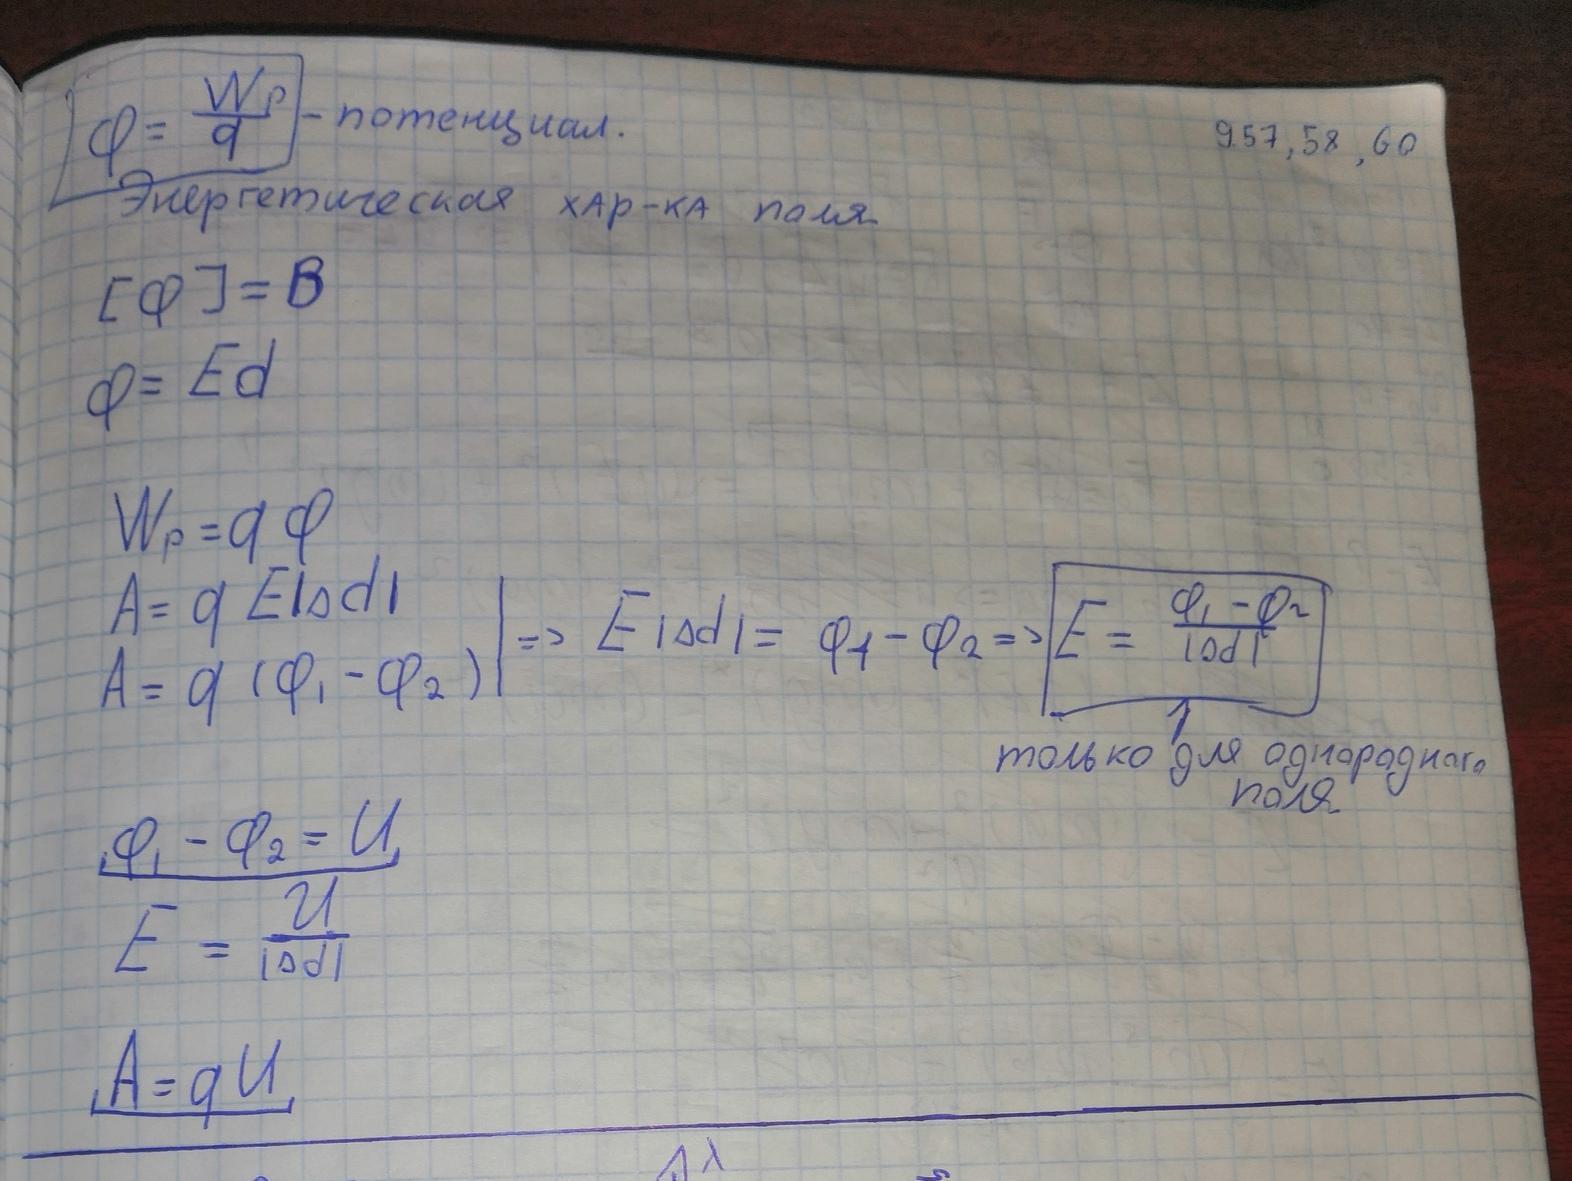 φ = Wp/q - потенциал.
957, 58, 60
Энергетическая хар-ка поля
[φ] = В
φ = Ed
Wp = qφ
A = qE|Δd|
A = q(φ₁ - φ₂) | => E|Δd| = φ₁ - φ₂ => E = (φ₁ - φ₂)/|Δd|
только для однародного
поля
φ₁ - φ₂ = U
E = U/|Δd|
A = qU